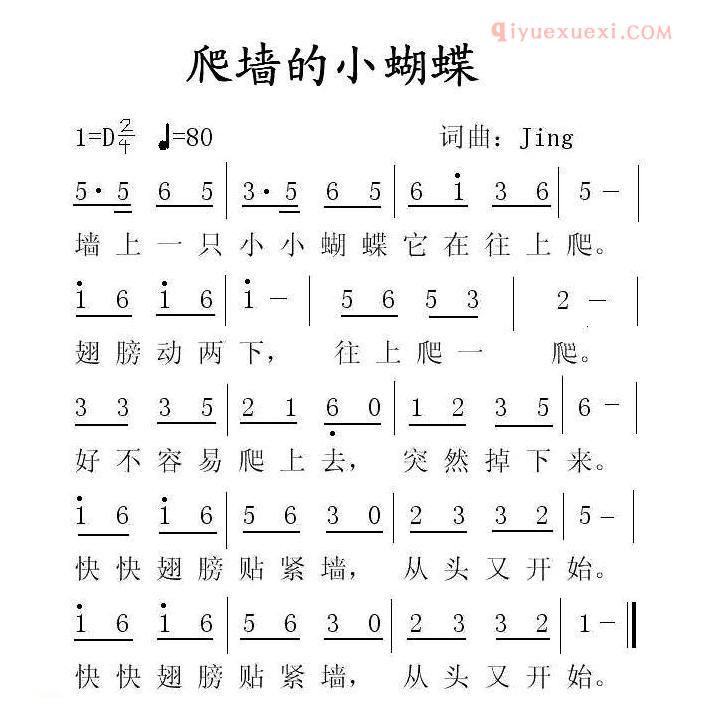 qiyuexuexi.com
爬墙的小蝴蝶
1=D 2/4 ♩=80 词曲：Jing
5· 5 6 5 | 3· 5 6 5 | 6 i 3 6 | 5 － |
墙上一只小小蝴蝶它在往上爬。
i 6 i 6 | i － | 5 6 5 3 | 2 － |
翅膀动两下， 往上爬一 爬。
3 3 3 5 | 2 1 6̣ 0 | 1 2 3 5 | 6 － |
好不容易爬上去， 突然掉下来。
i 6 i 6 | 5 6 3 0 | 2 3 3 2 | 5 － |
快快翅膀贴紧墙， 从头又开始。
i 6 i 6 | 5 6 3 0 | 2 3 3 2 | 1 － ‖
快快翅膀贴紧墙， 从头又开始。